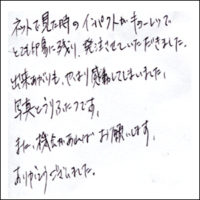 ネットで見た時のインパクトがキョーレツで
とても印象に残り、発注させていただきました。
出来あがりも、やはり感動してしまいました。
写真とうりふたつです。
また、機会があればお願いします。
ありがとうございました。